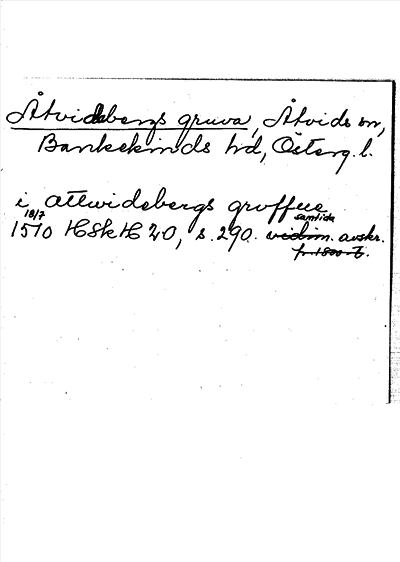 Åtvidsbergs gruva, Åtvids sn,
Bankekinds hd, Österg. l.
i attwidsbergs groffue
18/7 samtida
1510 HSkH 20, s. 290. vidim. avskr.
fr. 1800-t.